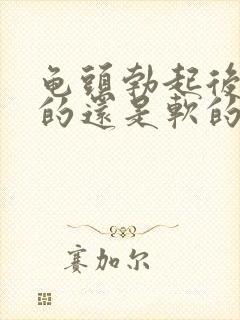 龟頭勃起後
的還是軟的
赛加尔